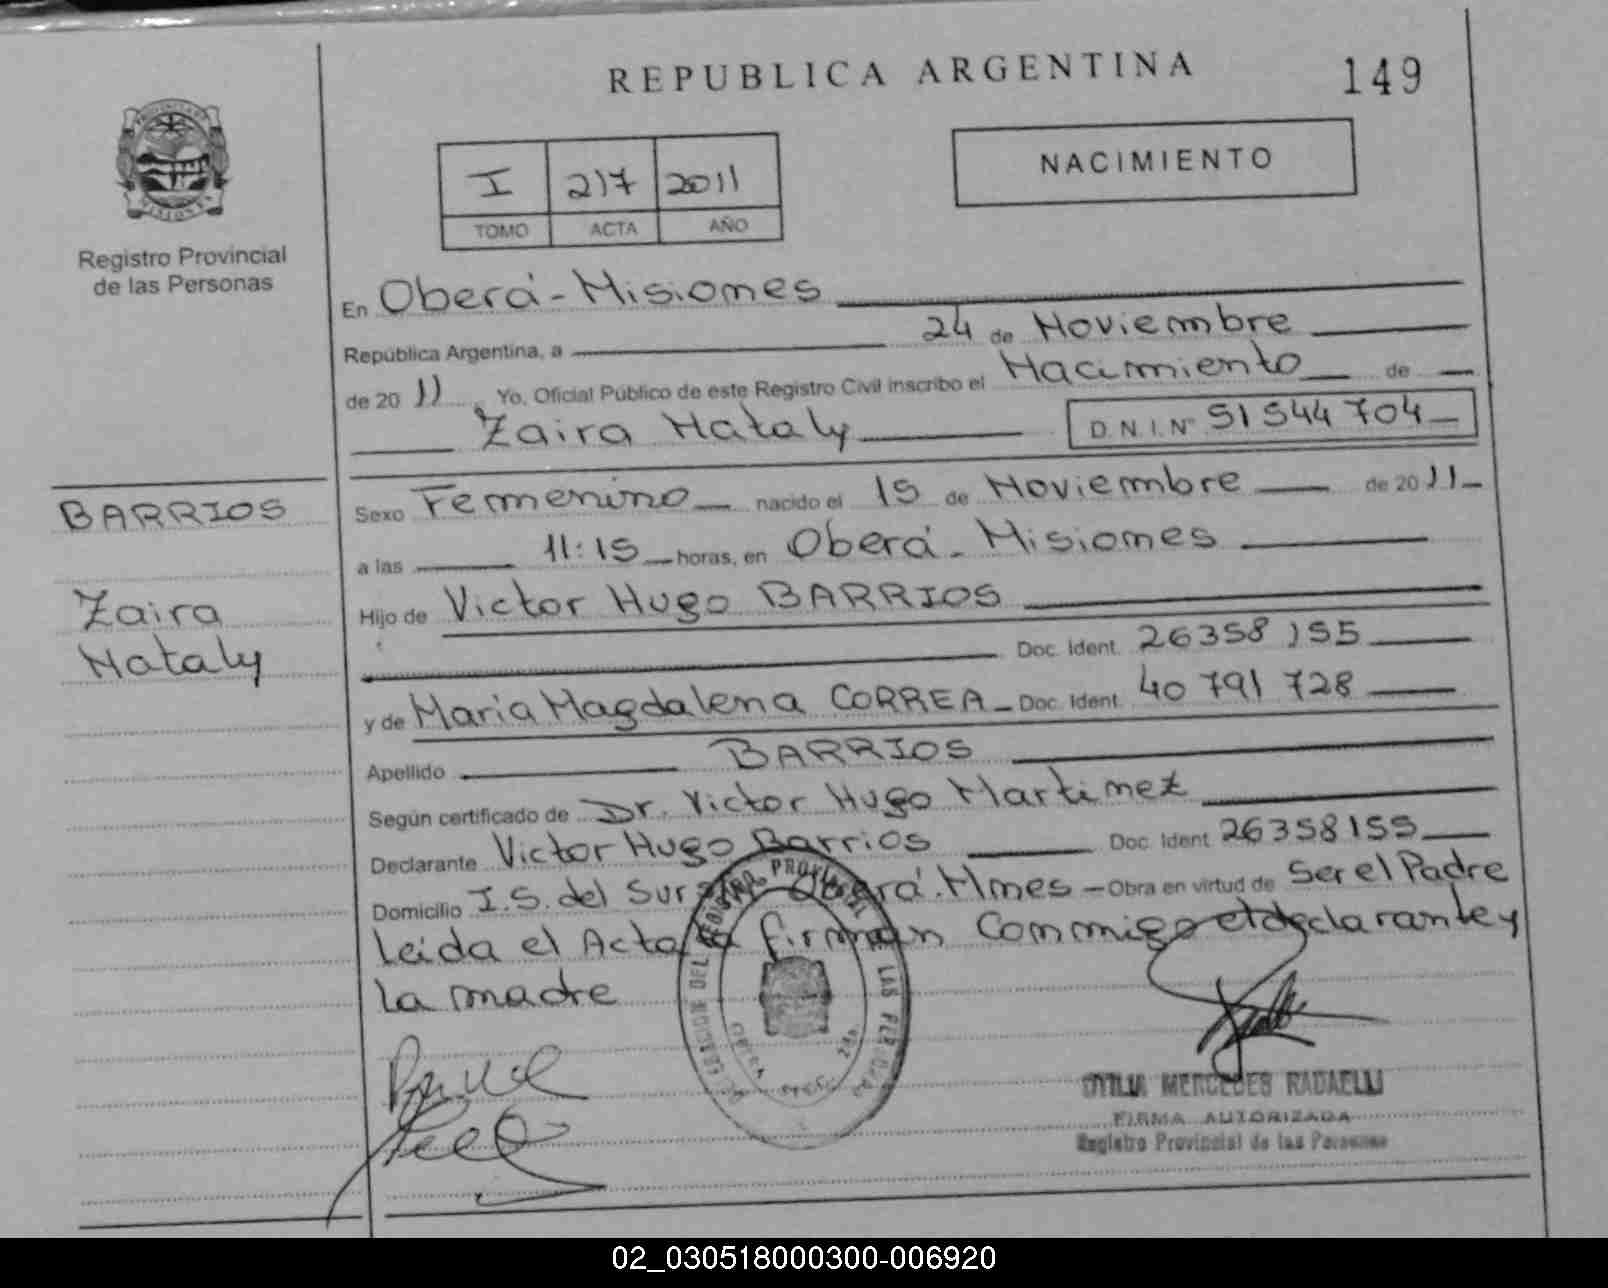 REPUBLICA ARGENTINA
149
I 217 2011
TOMO ACTA AÑO
NACIMIENTO
PROVINCIA DE MISIONES
Registro Provincial
de las Personas
BARRIOS
Zaira
Nataly
En Oberá - Misiones
República Argentina, a 24 de Noviembre
de 2011 Yo, Oficial Público de este Registro Civil inscribo el Nacimiento de
Zaira Nataly D.N.I.Nº 51 544 704
Sexo Femenino nacido el 15 de Noviembre de 2011
a las 11:15 horas, en Oberá - Misiones
Hijo de Victor Hugo BARRIOS
Doc. Ident. 26358155
y de Maria Magdalena CORREA Doc. Ident. 40 791 728
Apellido BARRIOS
Según certificado de Dr. Victor Hugo Martinez
Declarante Victor Hugo Barrios Doc. Ident 26358155
Domicilio I.S. del Sur Oberá. Mnes - Obra en virtud de Ser el Padre
Leida el Acta la firman Conmigo el declarante y
la madre
DEL REGISTRO PROVINCIAL DE LAS PERSONAS
OTILIA MERCEDES RADAELLI
FIRMA AUTORIZADA
Registro Provincial de las Personas
02_030518000300-006920